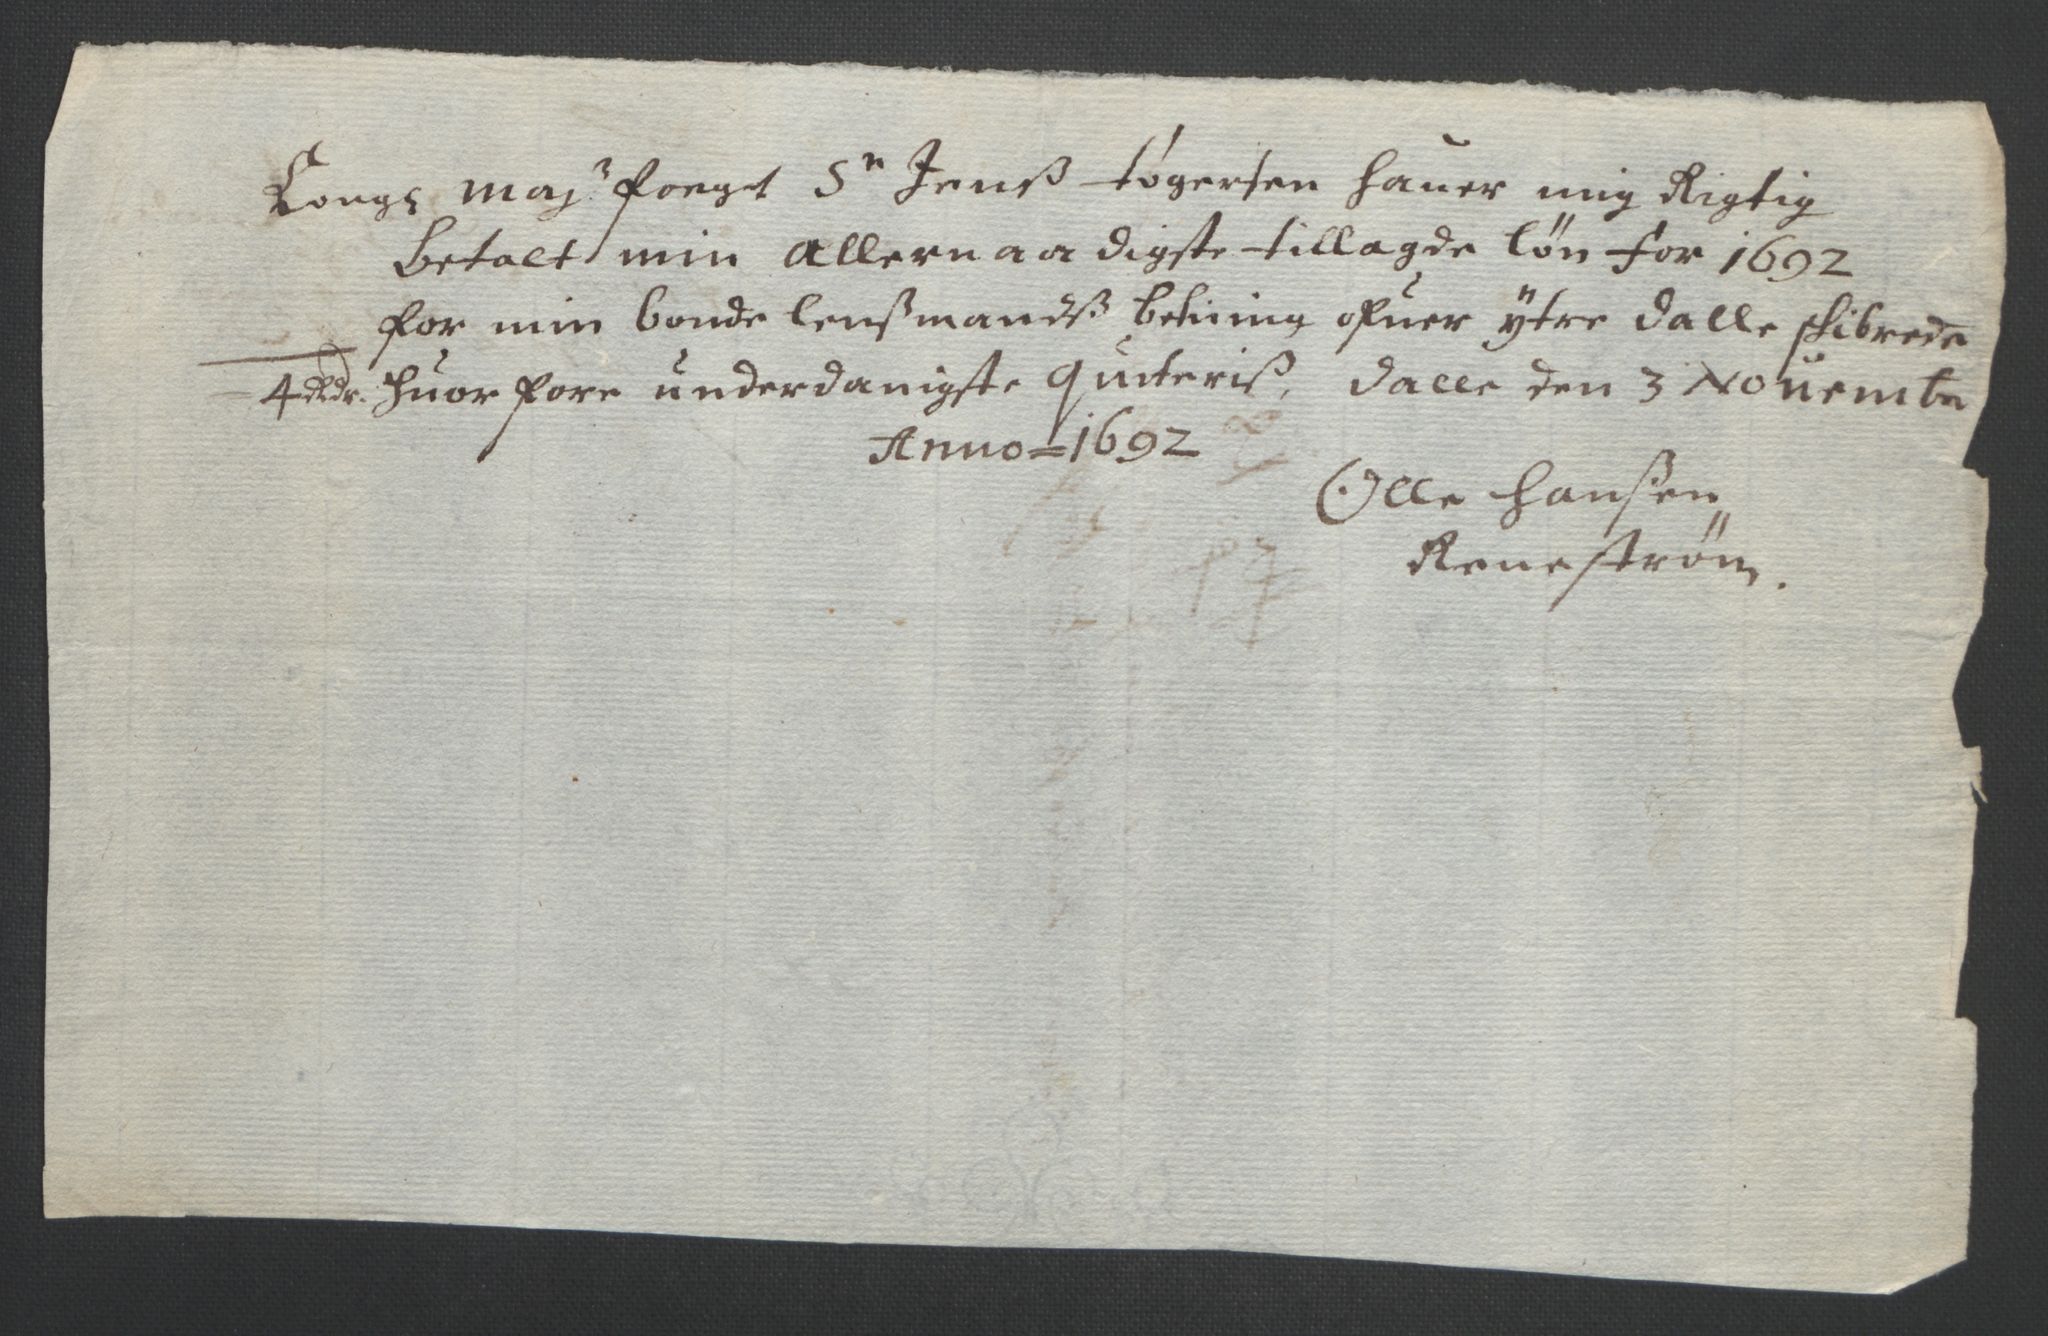 Kongs maj: foegt Sr Jenß tøgersen hauer mig Rigtig
betalt min Allernaadigste tillagde løn for 1692
for min bonde lenßmandß betining ofuer ytre dalle schibrede
4 Rdr. huorfore underdanigste quiteriß, dalle den 3 Nouember
Anno = 1692
Olle hanßen
Reneström.